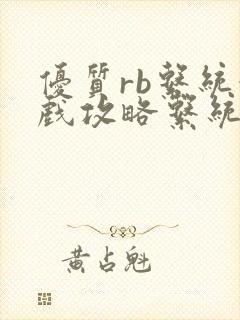 優質rb繫統
戲攻略繫統
黃占魁